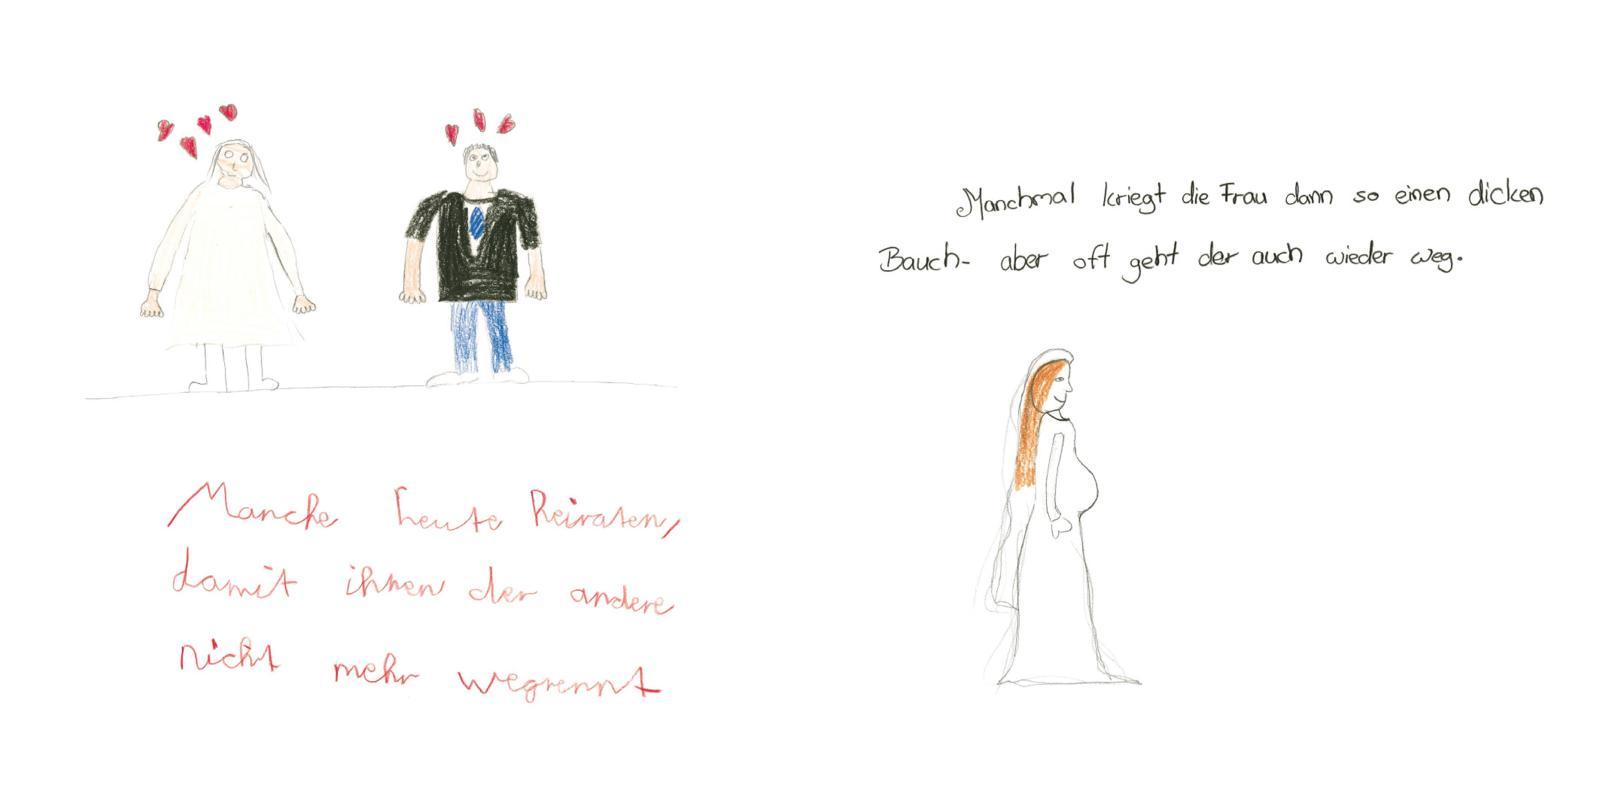 Manche leute heiraten,
damit ihnen der andere
nicht mehr wegrennt
Manchmal kriegt die Frau dann so einen dicken
Bauch- aber oft geht der auch wieder weg.